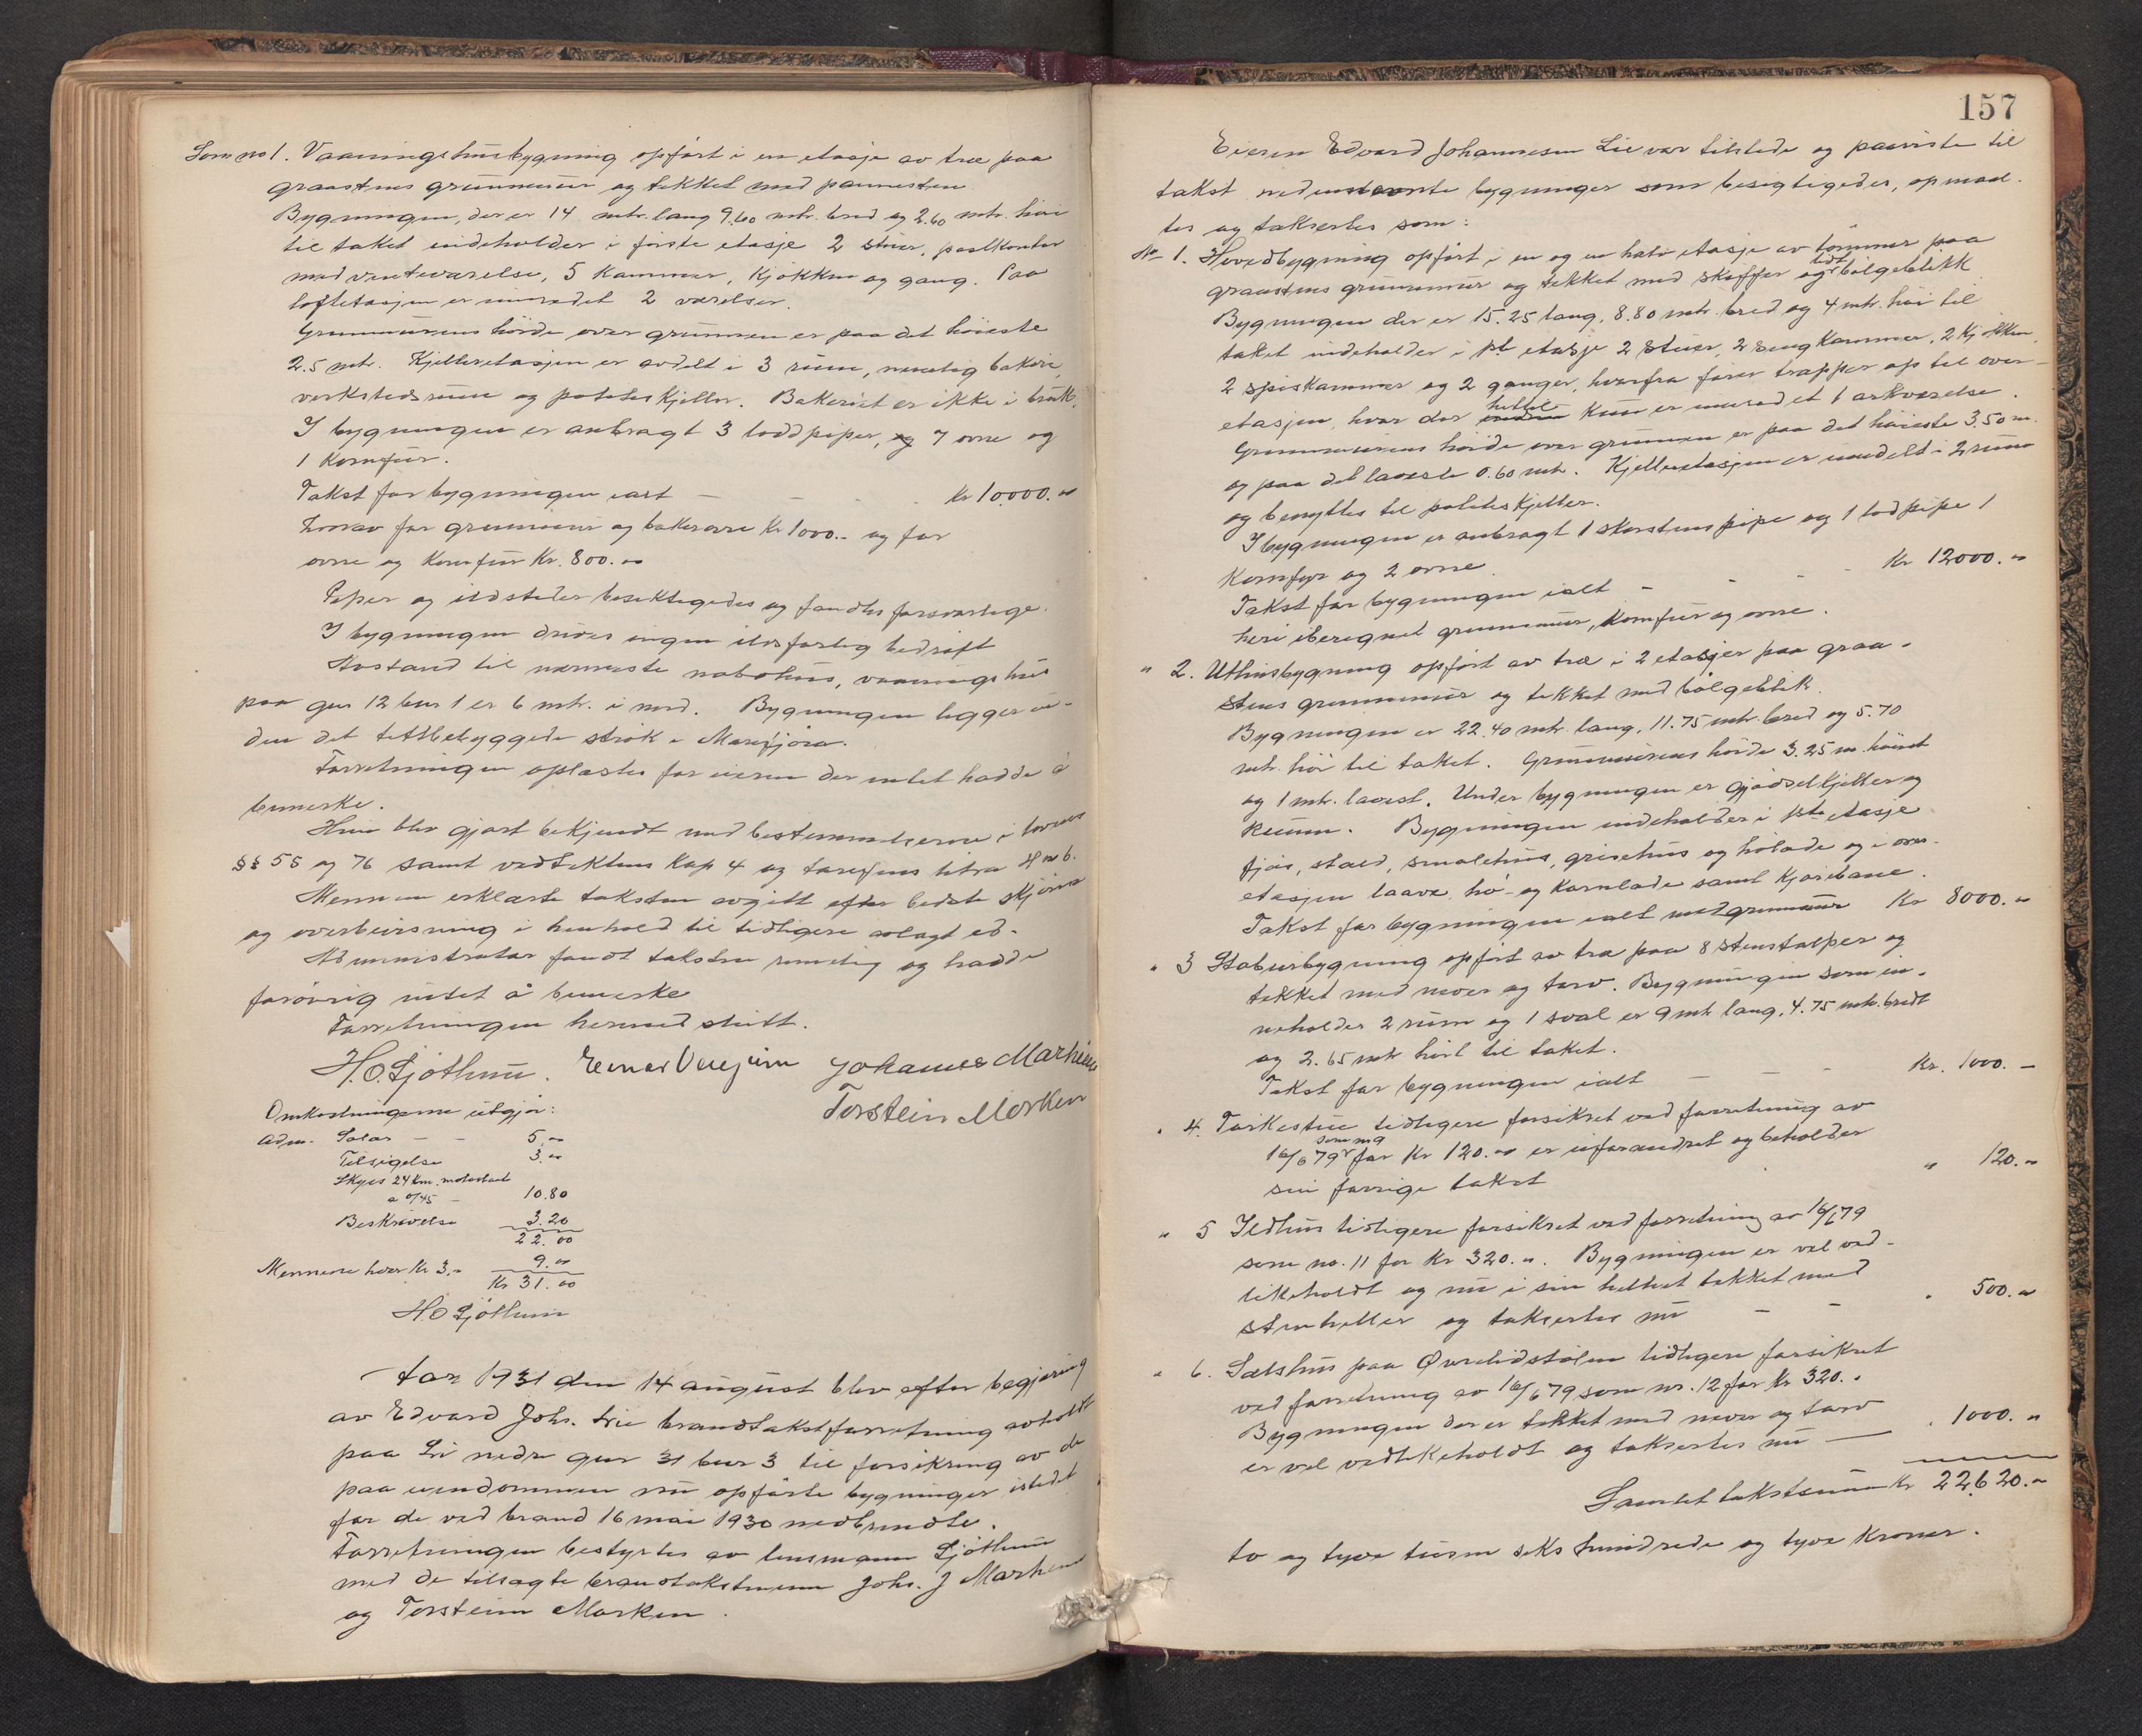 Som no 1. Vaaningshusbygning opført i en etasje av træ paa
graastens grunnmur og tekket med pannesten
Bygningen, der er 14 mtr. lang 9.60 mtr. bred og 2.60 mtr. høi
til taket indeholder i første etasje 2 stuer, postkontor
med venteværelse, 5 kammer, kjøkken og gang. Paa
loftetasjen er innredet 2 værelser.
Grunnmurens høide over grunnen er paa det høieste
2.5 mtr. Kjelleretasjen er avdelt i 3 rum, nemlig bakeri,
verkstedsrum og poteteskjeller. Bakeriet er ikke i bruk.
I bygningen er anbragt 3 loddpiper, og 7 ovne og
1 komfur.
Takst for bygningen ialt - - - kr 10000.00
hvorav for grunnmur og bakerovn kr 1000.- og for
ovne og komfur kr. 800.00
Piper og ildsteder besiktigedes og fandtes forsvarlige.
I bygningen drives ingen ildsfarlig bedrift
Avstand til nærmeste nabohus, vaaningshus
paa gnr 12 bnr 1 er 6 mtr. i nord. Bygningen ligger in-
den det tettbebyggede strøk i Marifjøra.
Forretningen oplæstes for eieren der intet hadde å
bemerke.
Hun blev gjort bekjendt med bestemmelserne i lovens
§§ 55 og 76 samt vedtektens kap 4 og tarifens litra H no 6.
Mennene erklærte taksten avgitt efter bedste skjønn
og overbevisning i henhold til tidligere avlagt ed.
Administrator fandt taksten rimelig og hadde
forøvrig intet å bemerke
Forretningen hermed slutt.
H.O. Sjøthun. Johannes Marheim
Torstein Morken
Omkostningerne utgjør:
Adm. Salær - - 5.00
Tilsigelse 3.00
Skyss 24 km. motorbaat
a 0/45 - 10.80
Beskrivelse 3.20
22.00
Mennene hver kr 3.- 9.00
Kr 31.00
H.O Sjøthun
Aar 1931 den 14 august blev efter begjæring
av Edvard Johs. Lie brandtakstforretning avholdt
paa Li nedre gnr 31 bnr 3 til forsikring av de
paa eiendommen nu opførte bygninger istedet
for de ved brand 16 mai 1930 nedbrendte.
Forretningen bestyrtes av lensmann Sjøthun
med de tilsagte brandtakstmenn Johs. J Marheim
og Torstein Morken.
157
Eieren Edvard Johannesen Lie var tilstede og paaviste til
takst nedennævnte bygninger som besigtigedes, opmaal-
tes og taksertes som:
No 1. Hovedbygning opført i en og en halv etasje av tømmer paa
graastens grunnmur og tekket med skiffer og litt bølgeblikk
Bygningen der er 15.25 lang, 8.80 mtr. bred og 4 mtr. høi til
taket indeholder i 1ste etasje 2 stuer, 2 sengkammer, 2 kjøkken,
2 spiskammer og 2 ganger, hvorfra fører trapper op til over-
etasjen, hvor der hittil kun er innredet 1 arkværelse.
Grunnmurens høide over grunnen er paa det høieste 3.50 m.
og paa det laveste 0.60 mtr. Kjelleretasjen er inndelt i 2 rum
og benyttes til poteteskjeller.
I bygningen er anbragt 1 skorstenspipe og 1 lodpipe 1
Komfyr og 2 ovne.
Takst for bygningen ialt - - - - Kr 12000.00
heri iberegnet grunnmur, komfur og ovne.
" 2. Uthusbygning opført av træ i 2 etasjer paa graa-
stens grunnmur og tekket med bølgeblik.
Bygningen er 22.40 mtr. lang, 11.75 mtr. bred og 5.70
mtr. høi til taket. Grunnmurens høide 3.25 m. høiest
og 1 mtr. lavest. Under bygningen er gjødselkjeller og
Bygningen indeholder i 1ste etasje
fjøs, stald, smalehus, grisehus og høilade og i over-
etasjen laave, hø- og kornlade samt kjørebane.
Takst for bygningen ialt med grunnmur Kr 8000.00
" 3 Stabursbygning opført av træ paa 8 stenstolper og
tekket med never og torv. Bygningen som in-
neholder 2 rum og 1 sval er 9 mtr lang, 4.75 mtr. bredt
og 2.65 mtr høit til taket.
Takst for bygningen ialt - - - Kr. 1000. -
" 4. Tørkestue tidligere forsikret ved forretning av
16/6 79 som no 9 for Kr 120.00 er uforandret og beholder
sin forrige takst " 120.00
" 5 Ildhus tidligere forsikret ved forretning av 16/6 79
som no. 11 for Kr 320.00. Bygningen er vel ved-
likeholdt og nu i sin helhet tekket med
stenheller og taksertes nu - - " 500.00
" 6. Sælshus paa Øvrelidstølen tidligere forsikret
ved forretning av 16/6 79 som nr. 12 for Kr 320.-
Bygningen der er tekket med never og torv
er vel vedlikeholdt og taksertes nu - " 1000.00
Samlet takstsum Kr 22620.00
to og tyve tusen seks hundrede og tyve kroner.